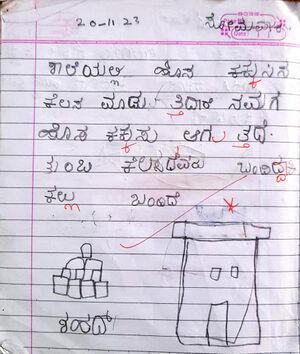 20-11-23 ಸೋಮವಾರ
ಶಾಲೆಯಲ್ಲಿ ಹೊಸ ಕಕ್ಕುಸಿನ
ಕೆಲಸ ಮಾಡು ತ್ತಿದಾರೆ ನಮಗೆ
ಹೊಸ ಕಕ್ಕುಸು ಆಗು ತ್ತದೆ
ತುಂಬ ಕೆಲಸದವರು ಬಂದಿದ್ದಾರೆ
ಕಲ್ಲು ಬಂದಿದೆ